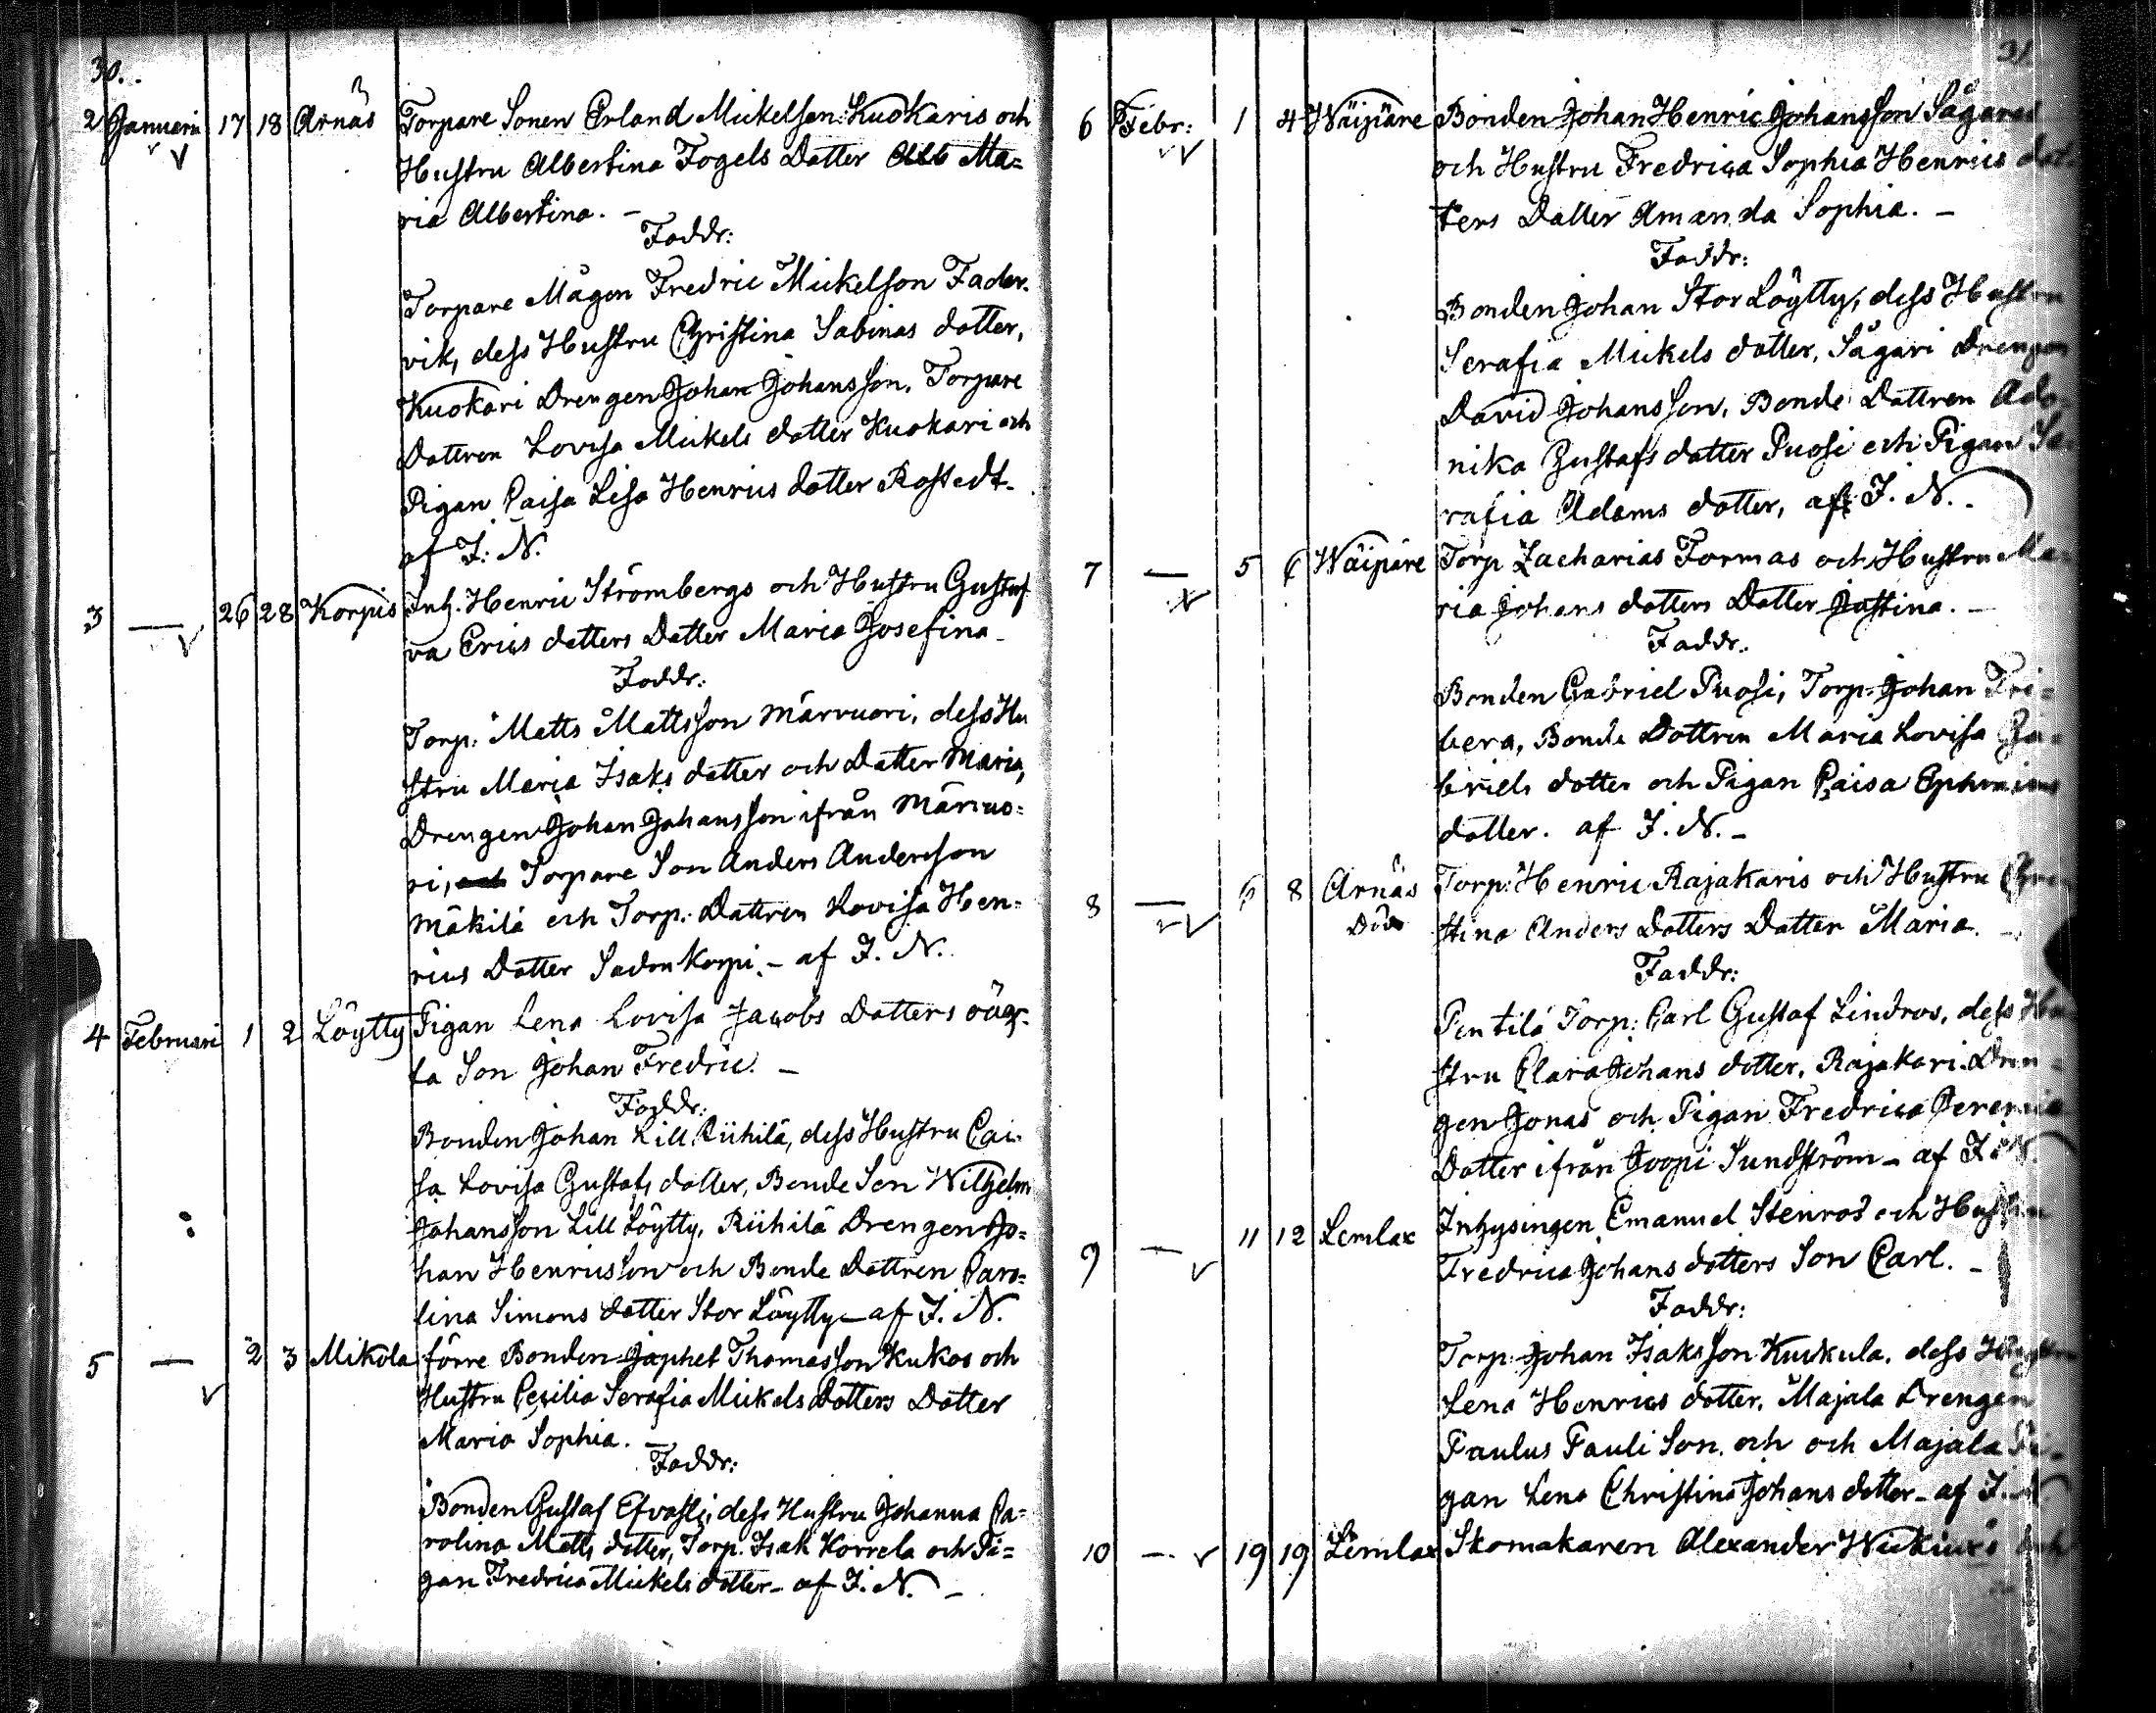 30.
2 Januari 17 18 Arnäs Torpare Sonen Erland Mickelson Kuokaris och
Hustru Albertina Fogels Datter Alb Ma=
ria Albertina. -
Faddr:
Torpare Mågen Fredric Mickelson Fader-
vik, dess Hustru Christina Sabinas dotter,
Kuokari Drengen Johan Johansson, Torpare
Dottren Lovisa Mickels dotter Kuokari och
Pigan Caisa Lisa Henrics dotter Rostedt.
af J. N.
3 — 26 28 Korpis Inh. Henric Strömbergs och Hustru Gustaf
va Erics dotters Datter Maria Josefina
Faddr:
Torp: Matts Mattsson Märvuori, dess Hu
stru Maria Isaks datter och Datter Maria,
Drengen Johan Johansson ifrån Märvuo=
ri, och Torpare Son Anders Andersson
Mäkilä och Torp. Dattren Lovisa Hen=
rics Datter Sadunkorpi. - af J. N.
4 Februari 1 2 Löytty Pigan Lena Lovisa Jacobs Datters oäg-
ta Son Johan Fredric. -
Faddr.
Bonden Johan Lill Riihilä, dess Hustru Cai-
sa Lovisa Gustafs datter, Bonde Son Wilhelm
Johansson Lill Löytty, Riihilä Drengen Jo=
han Henricsson och Bonde Dottren Caro=
lina Simons datter Stor Löytty - af J. N.
5 — 2 3 Mikola förre Bonden Japhet Thomasson Kukos och
Hustru Cecilia Serafia Mickels Dotters Dotter
Maria Sophia. -
Faddr:
Bonden Gustaf Efvasti, dess Hustru Johanna Ca=
rolina Matts dotter, Torp. Isak Korrela och Pi=
gan Fredrica Mickels dotter - af J. N. -
31
6 Febr: 1 4 Wäipäre Bonden Johan Henric Johansson Sågares
och Hustru Fredrica Sophia Henrics dot
ters Datter Amanda Sophia. -
Faddr:
Bonden Johan Stor Löytty, dess Hustru
Serafia Mickels dotter, Sågari Drengen
David Johansson, Bonde Dottren Ado
nika Gustafs dotter Puosi och Pigan Se
rafia Adams dotter, af J. N. -
7 — 5 6 Wäipäre Torp Zacharias Formas och Hustru Ma
ria Johans dotters Datter Justina. -
Faddr.
Bonden Gabriel Puosi, Torp. Johan Fri=
berg, Bonde Dottren Maria Lovisa Ga=
briels dotter och Pigan Caisa Ephraims
dotter. af J. N. -
8 — 6 8 Arnäs Torp: Henric Rajakaris och Hustru Chri
Död stina Anders Dotters Datter Maria. -
Faddr:
Pentilä Torp: Carl Gustaf Lindros, dess Hu
stru Clara Johans dotter, Rajakari Dren=
gen Jonas och Pigan Fredrica Jeremia
Datter ifrån Joopi Sundström - af J. N.
9 — 11 12 Lemlax Inhysingen Emanuel Stenros och Hustru
Fredrica Johans dotters Son Carl. -
Faddr:
Torp: Johan Isaksson Kuckula, dess Hustru
Lena Henrics dotter, Majala Drengen
Paulus Pauli Son, och och Majala Pi-
gan Lena Christina Johans dotter - af J. N
10 — 19 19 Lemlax Skomakaren Alexander Wickius's och